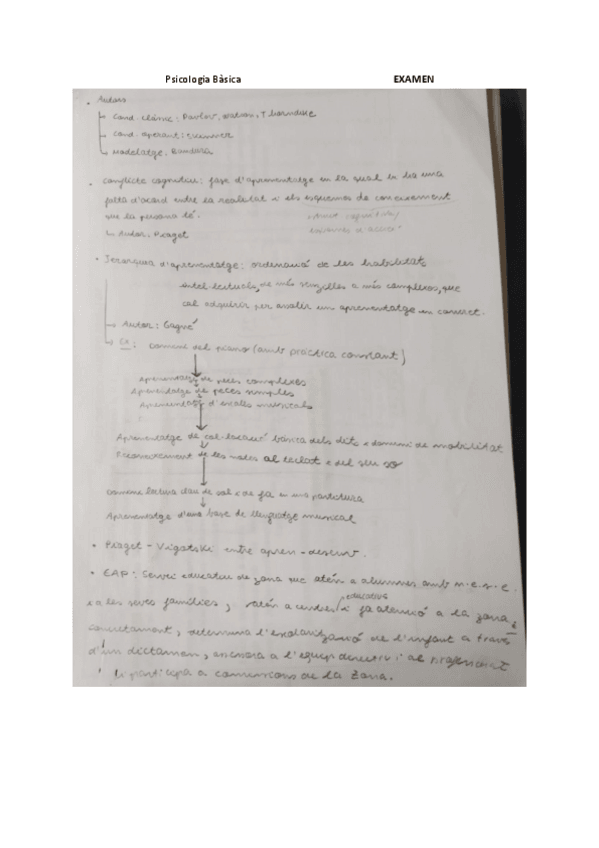 Psicologia Bàsica EXAMEN
• Autors
Cond. clàssic: Pavlov, Watson, Thorndike
Cond. operant: Skinner
Modelatge: Bandura
• Conflicte cognitiu: fase d'aprenentatge en la qual hi ha una
falta d'acord entre la realitat i els esquemes de coneixement
que la persona té.
↳ Autor: Piaget
• Jerarquia d'aprenentatge: ordenació de les habilitats
intel·lectuals, de més senzilles a més complexes, que
cal adquirir per assolir un aprenentatge en concret.
Autor: Gagné
Ex: Domini del piano (amb pràctica constant)
Aprenentatge de peces complexes
Aprenentatge de peces simples
Aprenentatge d'escales musicals
Aprenentatge de col·locació bàsica dels dits i domini de mobilitat
Reconeixement de les notes al teclat i del seu so
Domini lectura clau de sol i de fa en una partitura
Aprenentatge d'una base de llenguatge musical
• Piaget - Vigotski entre apren - desenv.
• EAP: Servei educatiu de zona que atén a alumnes amb n.e.s.e.
i a les seves famílies, atén a centres educatius i fa atenció a la zona,
concretament, determina l'escolarització de l'infant a través
d'un dictamen, assessora a l'equip directiu i al professorat
i participa a comissions de la zona.